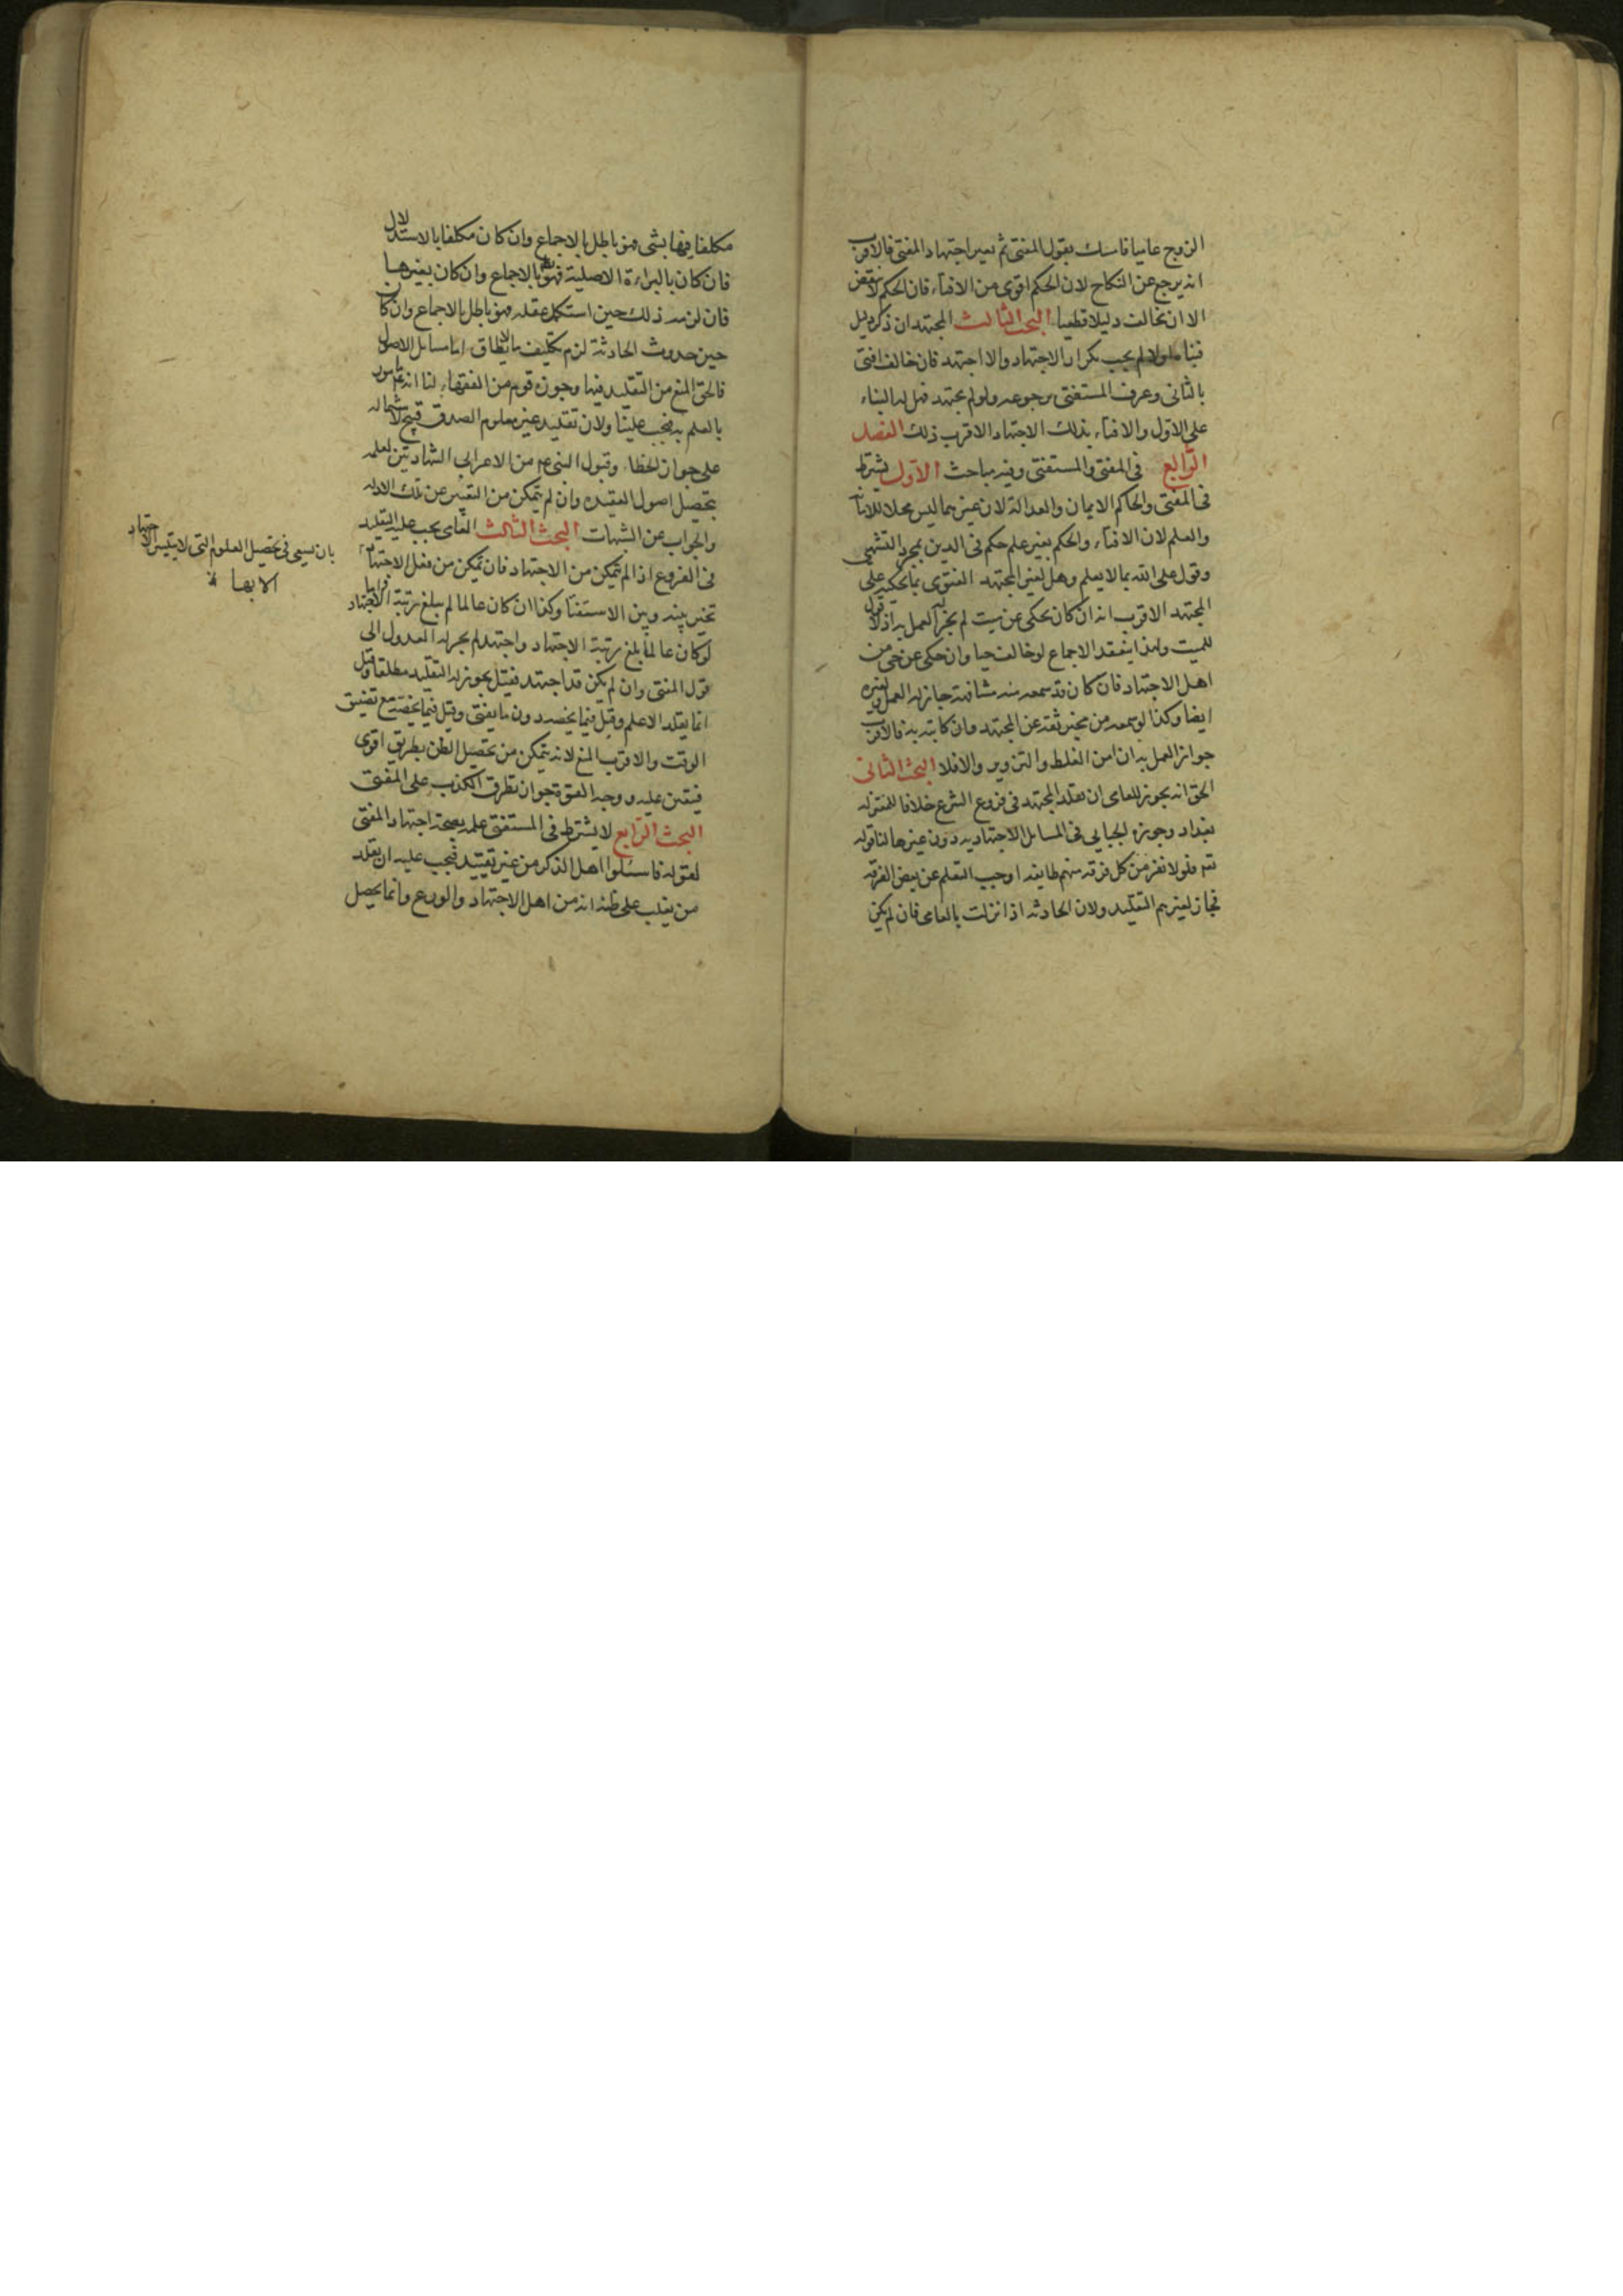 الزوج عاميا فامسك بقول المفتى ثم تغير اجتهاد المفتى فالاقرب
انه يرجع عن النكاح لان الحكم اقوى من الافتاء فان الحكم لا ينقض
الا ان يخالف دليلا قطعيا البحث الثالث المجتهد ان ذكر دليل
فتياه لم يجب تكرار الاجتهاد والا اجتهد فان خالف افتى
بالثانى وعرف المستفتى برجوعه ولو لم يجتهد فهل له البناء
على الاول والافتاء بذلك الاجتهاد الاقرب ذلك الفصل
الرابع فى المفتى والمستفتى وفيه مباحث الاول يشترط
فى المفتى والحاكم الايمان والعدالة لان غيرهما ليس محلا للامانة
والعلم لان الافتاء والحكم بغير علم حكم فى الدين بمجرد التشهى
وقول على الله بما لا يعلم وهل لغير المجتهد الفتوى بما يحكيه على
المجتهد الاقرب انه ان كان يحكى عن ميت لم يجز العمل به اذ لا قول
للميت ولهذا ينعقد الاجماع لو خالف حيا وان حكى عن حى من
اهل الاجتهاد فان كان قد سمعه منه مشافهة جاز له العمل ولغيره
ايضا وكذا لو سمعه من مخبر ثقة عن المجتهد وان كاتبه به فالاقرب
جواز العمل به ان امن الغلط والتزوير والا فلا البحث الثانى
الحق انه يجوز للعامى ان يقلد المجتهد فى فروع الشرع خلافا لمعتزلة
بغداد وجوزه الجبايى فى المسايل الاجتهادية دون غيرها لنا قوله
تعه فلولا نفر من كل فرقة منهم طايفة اوجب التعلم عن بعض الفرقة
فجاز لغيرهم التقليد ولان الحادثة اذا نزلت بالعامى فان لم يكن
مكلفا فيها بشى فهو باطل بالاجماع وان كان مكلفا بالاستدلال
فان كان بالبراءة الاصلية فهو بالاجماع وان كان بغيرها
فان لزمه ذلك حين استكمل عقله فهو باطل بالاجماع وان كان
حين حدوث الحادثة لزم تكليف ما لا يطاق اما مسايل الاصول
فالحق المنع من التقليد فيها وجوزه قوم من الفقهاء لنا انه عم مامور
بالعلم به فيجب علينا ولان تقليد غير معلوم الصدق قبيح لاشتماله
على جواز الخطاء وقبول النبى عم من الاعرابى الشهادتين لعلمه
بتحصيل اصول العقيده وان لم يتمكن من التعبير عن تلك الادله
والجواب عن الشبهات البحث الثالث العامى يجب عليه التقليد
فى الفروع اذا لم يتمكن من الاجتهاد فان تمكن من فعل الاجتهاد
تخير بينه وبين الاستفتا وكذا ان كان عالما لم يبلغ رتبة الاجتهاد
لو كان عالما بلغ رتبة الاجتهاد واجتهد لم يجز له العدول الى
قول المفتى وان لم يكن قد اجتهد فقيل يجوز له التقليد مطلقا وقيل
انما يقلد الاعلم وقيل فيما يخصه دون ما يفتى وقيل فيما يخصه مع تضيق
الوقت والاقرب المنع لانه يتمكن من تحصيل الظن بطريق اقوى
فيتعين عليه ووجه القوة جواز تطرق الكذب على المفتى
البحث الرابع لا يشترط فى المستفتى علمه بصحة اجتهاد المفتى
لقوله فاسئلوا اهل الذكر من غير تقييد فيجب عليه ان يقلد
من يغلب على ظنه انه من اهل الاجتهاد والورع وانما يحصل
بان يسعى فى تحصيل العلوم التى لا يتيسر الاجتهاد
الا بها